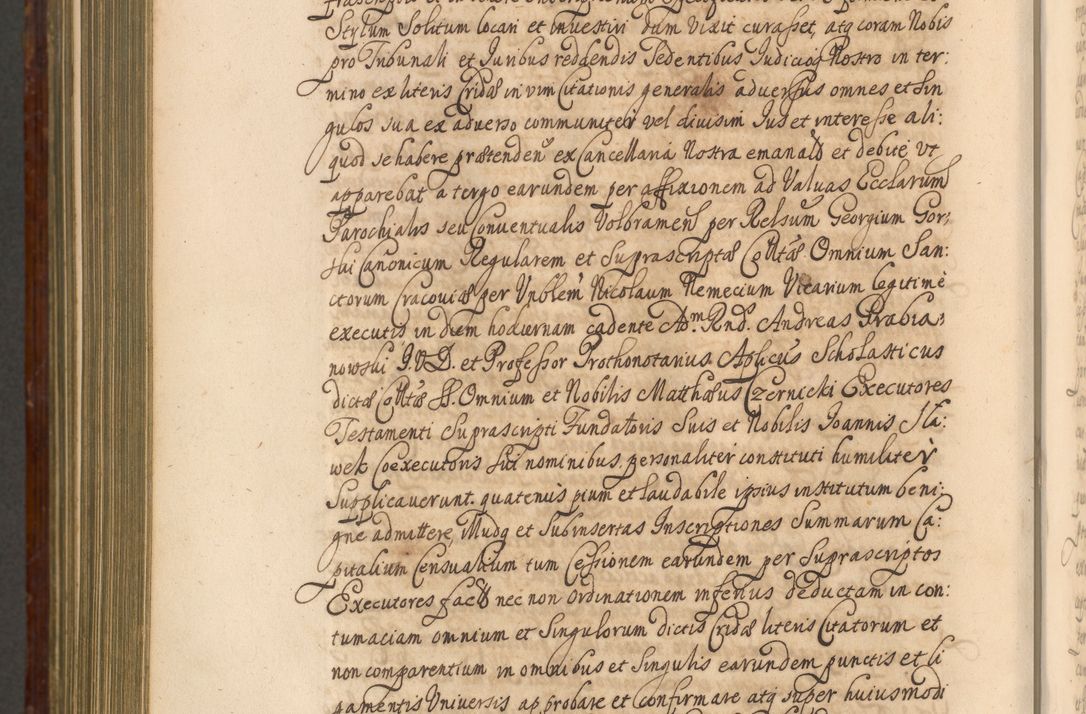 Stylum Solitum locari et investiri dum Vixit curasset, atq coram Nobis
pro Tribunali et Juribus reddendis Sedentibus Judicioq Nostro in ter:
mino ex literis Cridæ in vim Citationis generalis adversus omnes et sin
gulos sua ex adverso communiter vel divisim Jus et interesse ali:
quod se habere prætenden ex Cancellaria Nostra emanatis et debite ut
apparebat a tergo earundem per affixionem ad Valvas Ecclarum
Parochialis seu Conventualis Volbramen per Relsum Georgium Gor,
ski Canonicum Regularem et Suprascriptæ Colltæ Omnium San:
ctorum Cracoviæ per Vnblem Nicolaum Nemecium Vicarium legitime
executis in diem hodiernam cadente Adm Rnd. Andreas Grabia,
nowski J.V.D. et Professor Prothonotarius Aplicus Scholasticus
dictæ Colltæ SS. Omnium et Nobilis Matthæus Czernicki Executores
Testamenti Suprascripti Fundatoris Suis et Nobilis Joannis Sła:
wek Coexecutoris sui nominibus personaliter constituti humiliter
Supplicaverunt quatenus pium et laudabile ipsius institutum beni,
gne admittere, Illudq et Subinsertas Inscriptiones Summarum Ca:
pitalium Censualium tum Cessionem earundem per Suprascriptos
Executores factas nec non Ordinationem inferius deductam in con:
tumaciam omnium et Singulorum dictis Cridæ literis Citatorum et
non comparentium in omnibus et Singulis earundem punctis et li
gamentis Universis approbare et Confirmare atq super huiusmodi